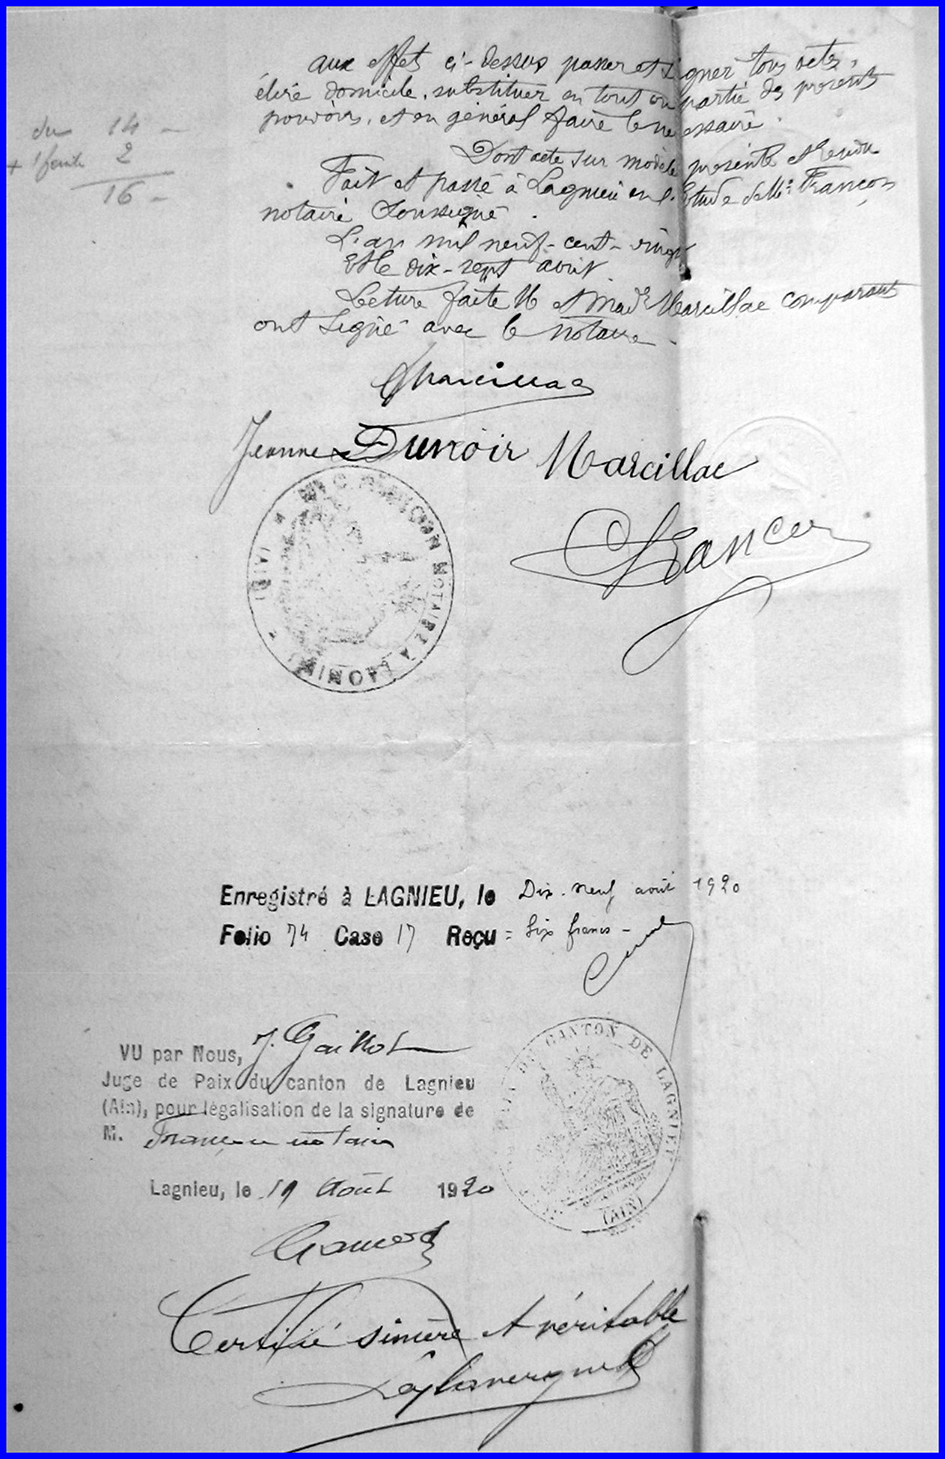 aux effets ci-dessus passer et signer tous actes,
élire domicile, substituer en tout ou partie des présents
pouvoirs, et en général faire le nécessaire.
du 14 -
+ 1 faute 2
16 -
Dont acte sur modèle présenté et rendu
Fait et passé à Lagnieu en l'Etude de Me Françon
notaire soussigné.
L'an mil neuf-cent-vingt
Et le dix-sept avril
Lecture faite M et Made Marcillac comparants
ont signé avec le notaire.
Marcillac
Jeanne Dunoir Marcillac
Françon
FRANÇON NOTAIRE À LAGNIEU
Enregistré à LAGNIEU, le Dix-neuf août 1920
Folio 74 Case 17 Reçu = Six francs -
VU par Nous, J. Gaillot
Juge de Paix du canton de Lagnieu
(Ain), pour légalisation de la signature de
M. Françon notaire
Lagnieu, le 19 Août 1920
DU CANTON DE LAGNIEU (AIN)
Certifié sincère et véritable